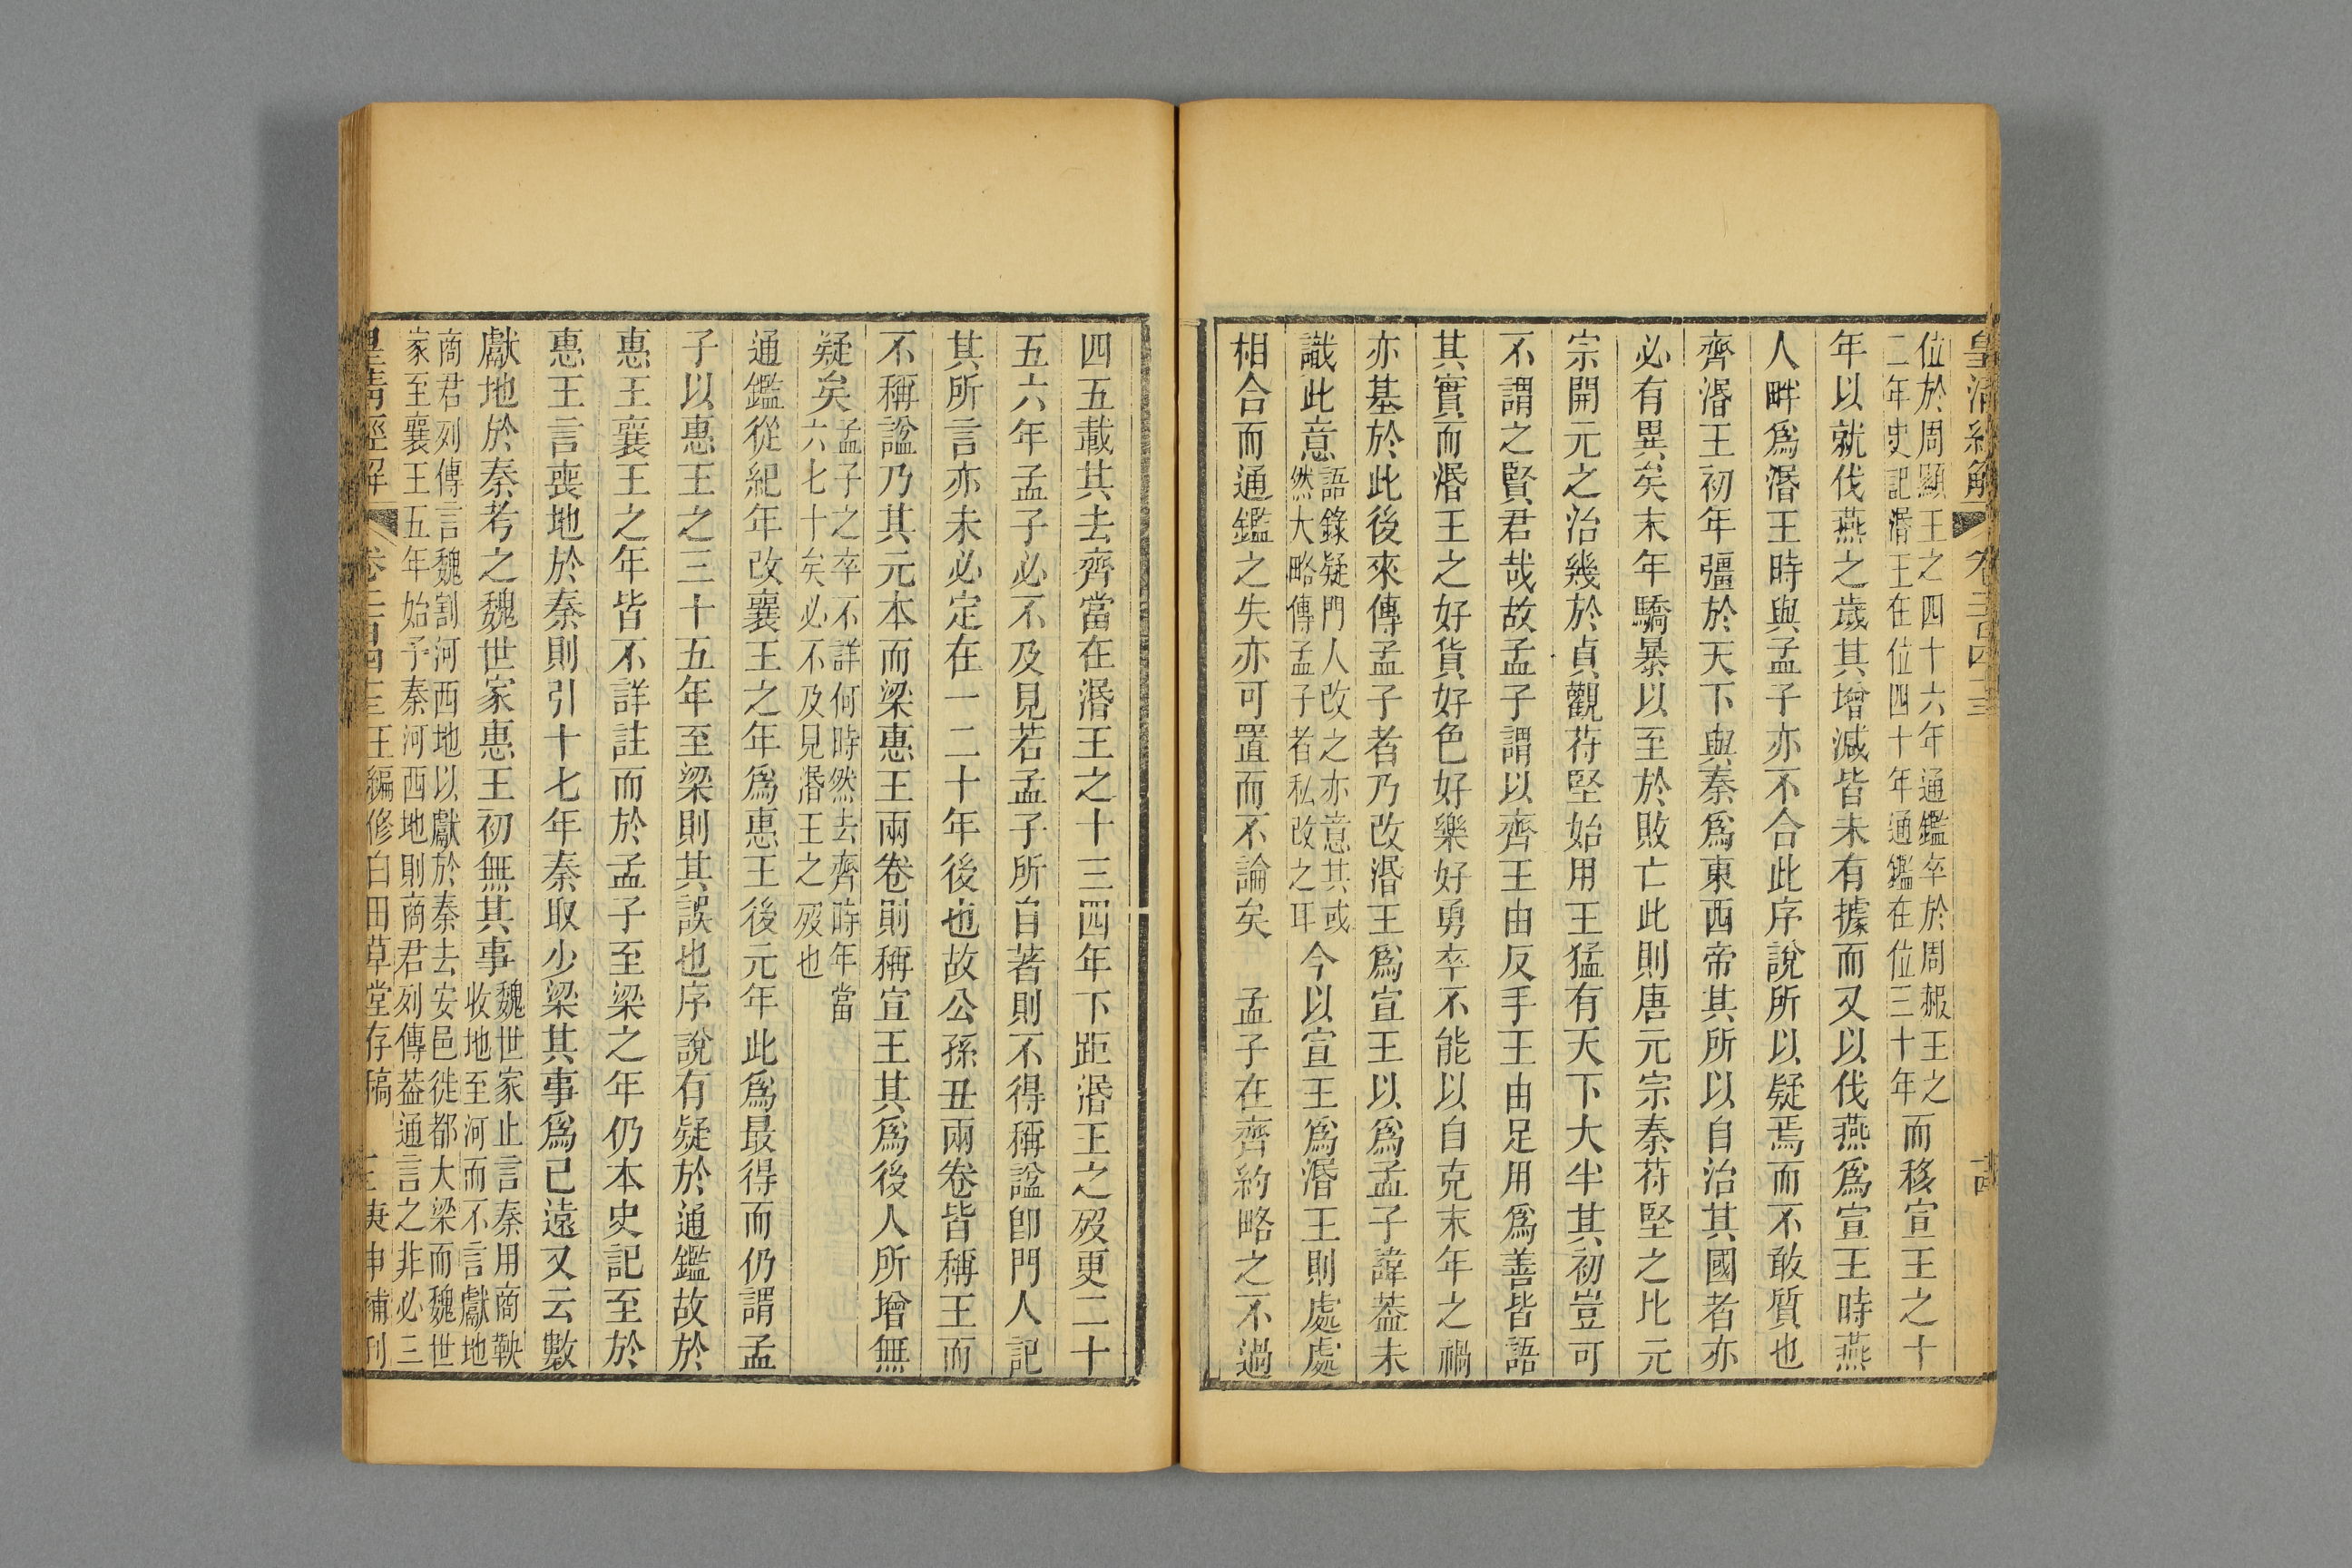 皇清經解 卷二百四十三
位於周顯王之四十六年通鑑卒於周赧王之
二年史記湣王在位四十年通鑑在位三十年而移宣王之十
年以就伐燕之歲其增減皆未有據而又以伐燕爲宣王時燕
人畔爲湣王時與孟子亦不合此序說所以疑焉而不敢質也
齊湣王初年彊於天下與秦爲東西帝其所以自治其國者亦
必有異矣末年驕暴以至於敗亡此則唐元宗秦苻堅之比元
宗開元之治幾於貞觀苻堅始用王猛有天下大半其初豈可
不謂之賢君哉故孟子謂以齊王由反手王由足用爲善皆語
其實而湣王之好貨好色好樂好勇卒不能以自克末年之禍
亦基於此後來傳孟子者乃改湣王爲宣王以爲孟子諱葢未
識此意語錄疑門人改之亦意其或
然大略傳孟子者私改之耳今以宣王爲湣王則處處
相合而通鑑之失亦可置而不論矣 孟子在齊約略之不過
四五載其去齊當在湣王之十三四年下距湣王之歿更二十
五六年孟子必不及見若孟子所自著則不得稱諡卽門人記
其所言亦未必定在一二十年後也故公孫丑兩卷皆稱王而
不稱諡乃其元本而梁惠王兩卷則稱宣王其爲後人所增無
疑矣孟子之卒不詳何時然去齊時年當
六七十矣必不及見湣王之歿也
通鑑從紀年改襄王之年爲惠王後元年此爲最得而仍謂孟
子以惠王之三十五年至梁則其誤也序說有疑於通鑑故於
惠王襄王之年皆不詳註而於孟子至梁之年仍本史記至於
惠王言喪地於秦則引十七年秦取少梁其事爲已遠又云數
獻地於秦考之魏世家惠王初無其事魏世家止言秦用商鞅
收地至河而不言獻地
商君列傳言魏割河西地以獻於秦去安邑徙都大梁而魏世
家至襄王五年始予秦河西地則商君列傳葢通言之非必三
皇清經解 卷二百四十三 王編修白田草堂存稿 庚申補刊